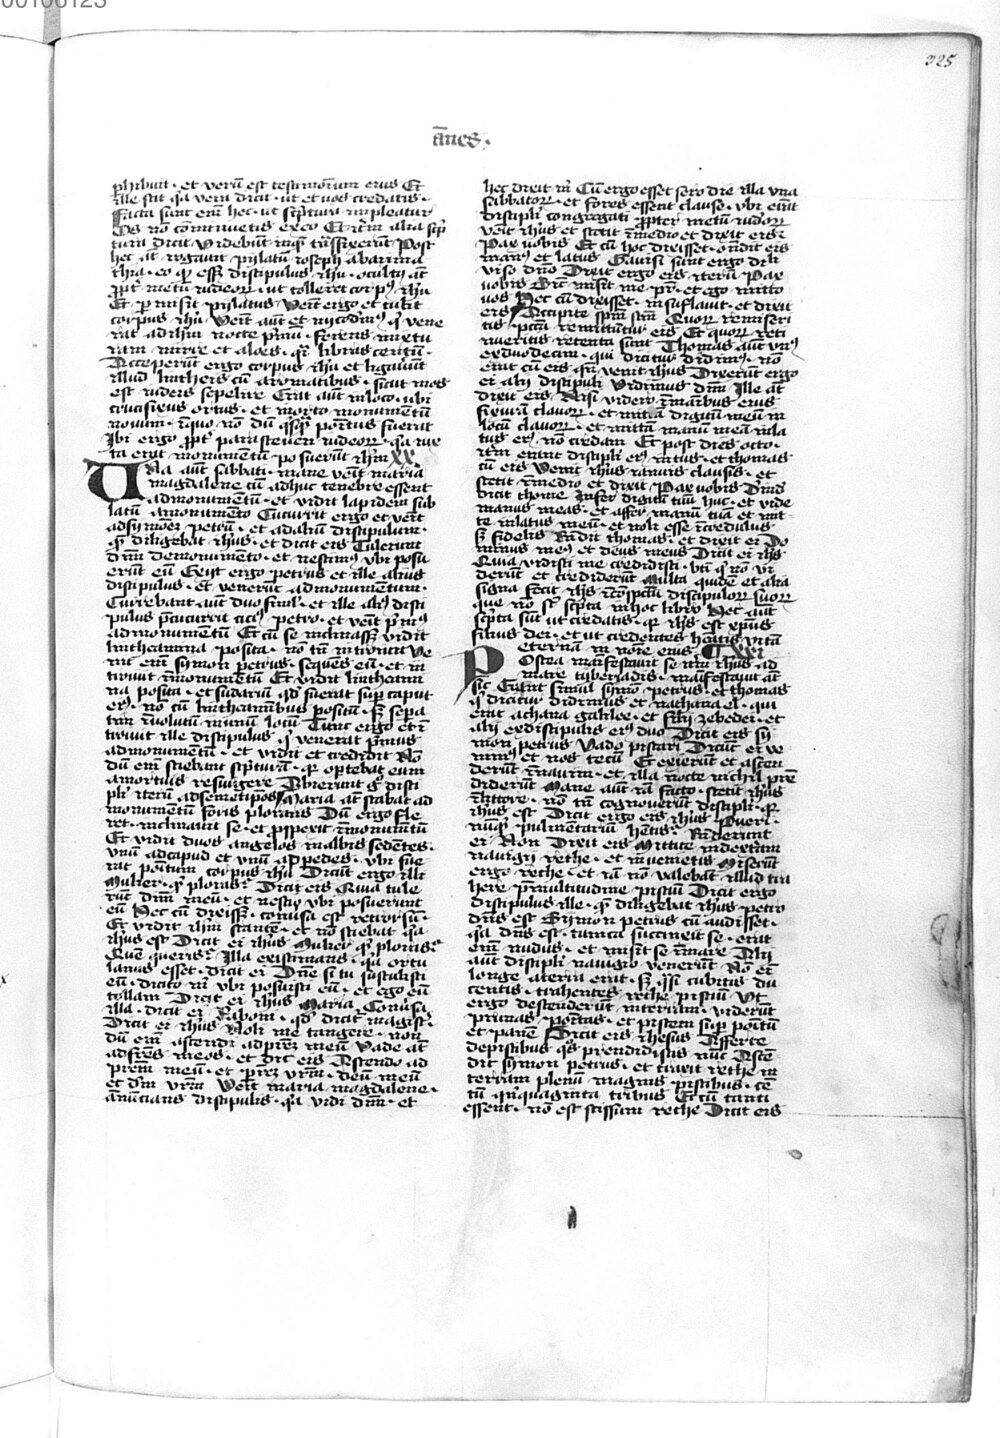 00106123
325
a̅nes.
phibuit · et veru̅ est testimoniu̅ eius Et
ille scit q̅a vera dicit · ut et vos credatis ·
Facta sunt em̅ hec · ut sc̅ptura impleatur
Os no̅ co̅minuetis ex eo Et ite̅m alia sc̅p
tura dicit Videbu̅t in que̅ tn̅sfixeru̅t Post
hec at̅ rogavit pylatu̅ ioseph ab arima
thia · eo qͥ esset discipulus ih̅u · ocultꝰ at̅
p̅pt̅ metu̅ iudeoꝝ · ut tolleret corpꝰ ih̅u
Et p̅misit pylatus Venit ergo et tulit
corpus ih̅u Ve̅it au̅t et nycodemꝰ qͥ vene
rat ad ih̅m nocte p̅mu̅ · ferens mixtu
ram mirre et aloes · q̅i libras centu̅ ·
Acceperu̅t ergo corpus ih̅u et ligaueru̅t
illud lintheis cu̅ aromatibus · sicut mos
est iudeis sepelire Erat aut̅ in loco · ubi
crucifixus ortus · et in orto monumentu̅
novum · in quo no̅ du̅ q̅sq̅ positus fuerat
Ibi ergo p̅pt̅ parasceuen iudeoꝝ · q̅a iux
ta erat monumentu̅ posueru̅t ih̅m XX
Vna aut̅ sabbati · mane ve̅it maria
magdalene cu̅ adhuc tenebre essent
ad monumentu̅ · et vidit lapidem sub
latu̅ a monume̅to Cucurrit ergo et ve̅it
ad symone̅ petru̅ · et ad aliu̅ discipulum ·
que̅ diligebat ih̅us · et dicit eis Tuleru̅t
dn̅m de monume̅to · et nescimꝰ ubi posu
eru̅t eu̅ Exijt ergo petrus et ille alius
discipulus · et veneru̅t ad monume̅tum ·
Currebant aut̅ duo simul · et ille aliꝰ disci
pulus p̅cucurrit citiꝰ petro · et ve̅it p̅mꝰ
ad monume̅tu̅ Et cu̅ se inclinasset vidit
lintheamina posita · no̅ tn̅ introivit Ve
nit em̅ symon petrus · seque̅s eu̅ · et in
troivit in monume̅tu̅ Et vidit linthcami
na posita · et sudariu̅ qd̅ fuerat sup̅ caput
eiꝰ · no̅ cu̅ lintheaminibus positu̅ · sꝫ sepa
tim in volutu̅ in unu̅ locu̅ Tunc ergo et i̅
troivit ille discipulus · qͥ venerat p̅mus
ad monume̅tu̅ · et vidit et credidit No̅
du̅ em̅ sciebant sc̅ptura̅ · qͥ oportebat eum
a mortuis resurgere Abieru̅t g̅ disci
puli iteru̅ ad semetipos Maria at̅ stabat ad
monume̅tu̅ foris plorans Du̅ ergo fle
ret · inclinavit se · et p̅spexit in monume̅tu̅
Et vidit duos angelos in albis sedentes ·
unu̅ ad capud et unu̅ ad pedes · ubi fue
rat positum corpus ih̅u Dicu̅t ergo illi
Mulier · q̅d ploras? Dicit eis Quia tule
ru̅t dn̅m meu̅ · et nescio ubi posuerunt
eu̅ Hec cu̅ dixiss̅ · conv̅sa est retrorsu̅ ·
Et vidit ih̅m stante̅ · et no̅ sciebat q̅a
ih̅us est Dicit ei ih̅us Mulier q̅d ploras?
Que̅ queris? Illa existimans · q̅a ortu
lanus esset · dicit ei Dn̅e si tu sustulisti
eu̅ · dicito m̅ ubi posuisti eu̅ · et ego eu̅
tollam Dicit ei ih̅us Maria Conv̅sa
illa · dicit ei Raboni · qd̅ dicit̅ magist̅ ·
Dicit ei ih̅us Noli me tangere · non
du̅ em̅ ascendi ad p̅rez meu̅ Vade at̅
ad fr̅es meos · et dic eis Ascendo ad
p̅rem meu̅ · et p̅rez vr̅m · deu̅ meu̅
et dm̅ vr̅m Ve̅it maria magdalene ·
anu̅cians discipulis · q̅a vidi dn̅m · et
hec dixit m̅ Cu̅ ergo esset sero die illa una
sabbatoꝝ · et fores essent clause · ubi era̅t
discipli̅ congregati p̅pter metu̅ iudeoꝝ
ve̅it ih̅us et stetit in medio et dixit eis
Pax vobis Et cu̅ hoc dixisset · on̅dit eis
manꝰ et latus Gavisi sunt ergo di̅li
viso dn̅o Dixit ergo eis iteru̅ Pax
vobis Sic̅ misit me pr̅ · et ego mitto
vos Hec cu̅ dixisset · insuflavit · et dixit
eis Accipite sp̅m sc̅m Quoꝝ remiseri
tis · pcc̅a remittu̅tur eis Et quoꝝ reti
nueritis retenta sunt Thomas aut̅ unꝰ
ex duodecim · qui dicitur didimꝰ · no̅
erat cu̅ eis qn̅ venit ih̅us Dixeru̅t ergo
ei alij discipuli Vidimus dn̅m Ille at̅
dixit eis Nisi videro in manibus eius
fixura̅ clavoꝝ · et mitta̅ digitu̅ meu̅ in
locu̅ clavoꝝ · et mitta̅ manu̅ mea̅ in la
tus eiꝰ no̅ credam Et post dies octo ·
ite̅m erant discipli̅ eiꝰ intus · et thomas
cu̅ eis Venit ih̅us ianuis clausis · et
stetit in medio et dixit Pax vobis Deind̅
dicit thome Infer digitu̅ tuu̅ huc · et vide
manus meas · et affer manu̅ tua̅ et mit
te in latus meu̅ · et noli esse incredulus
sꝫ fidelis Rn̅dit thomas · et dixit ei Do
minus meꝰ et deus meus Dicit ei ih̅s
Quia vidisti me credidisti · bt̅i qͥ no̅ vi
deru̅t et credideru̅t Multa quide̅ et alia
signa fecit ih̅s in co̅spectu discipuloꝝ suoꝝ
que no̅ su̅t sc̅pta in hoc libro Hec aut̅
sc̅pta su̅t ut credatis · qͥ ih̅s est xp̅us
filius dei · et ut credentes h̅eatis vita̅
eternam in no̅ie eius XXI
Postea manifestavit se ite̅m ih̅us ad
mare tyberiadis · ma̅ifestavit at̅
sic Era̅t simul symo̅ · petrus · et thomas
qͥ dicitur didimus · et nathanael · qui
erat a chana galilee · et filij zebedei · et
alij ex discipulis eiꝰ duo Dicit eis sy
mon petrus Vado piscari Dicu̅t ei ve
nimꝰ et nos tecu̅ Et exieru̅t et ascen
deru̅t in navim · et illa nocte nichil pre̅
dideru̅t Mane aut̅ ia̅ facto · stetit ih̅us
in littore · no̅ tn̅ cognoveru̅t discipli̅ · qͥ
ih̅us est Dicit ergo eis ih̅us Pueri ·
nu̅q̅d pulmentariu̅ h̅etis? Rn̅derunt
ei Non Dixit eis Mittite in dextram
navigij rethe · et in venietis Miseru̅t
ergo rethe · et ia̅ no̅ valeba̅t illud tra
here p̅ multitudine pisciu̅ Dicit ergo
discipulus ille · que̅ diligebat ih̅us · petro
dn̅s est Symon petrus cu̅ audisset ·
q̅a dn̅s est · tunica succinxit se · erat
em̅ nudus · et misit se in mare Alij
aut̅ discipli̅ navigio venerunt No̅ em̅
longe a terra era̅t · sꝫ q̅si cubitis du
centis · trahentes rethe pisciu̅ Ut
ergo descenderu̅t in terram · videru̅t
prunas po̅itas · et piscem sup̅ po̅itu̅
et pane̅ Dicit eis ih̅esus Afferte
de piscibus q̅s prendidistis nu̅c Asce̅
dit symon petrus · et traxit rethe in
terram plenu̅ magnis piscibus · ce̅
tu̅ q̅nquaginta tribus Et cu̅ tanti
essent · no̅ est scissum rethe Dicit eis